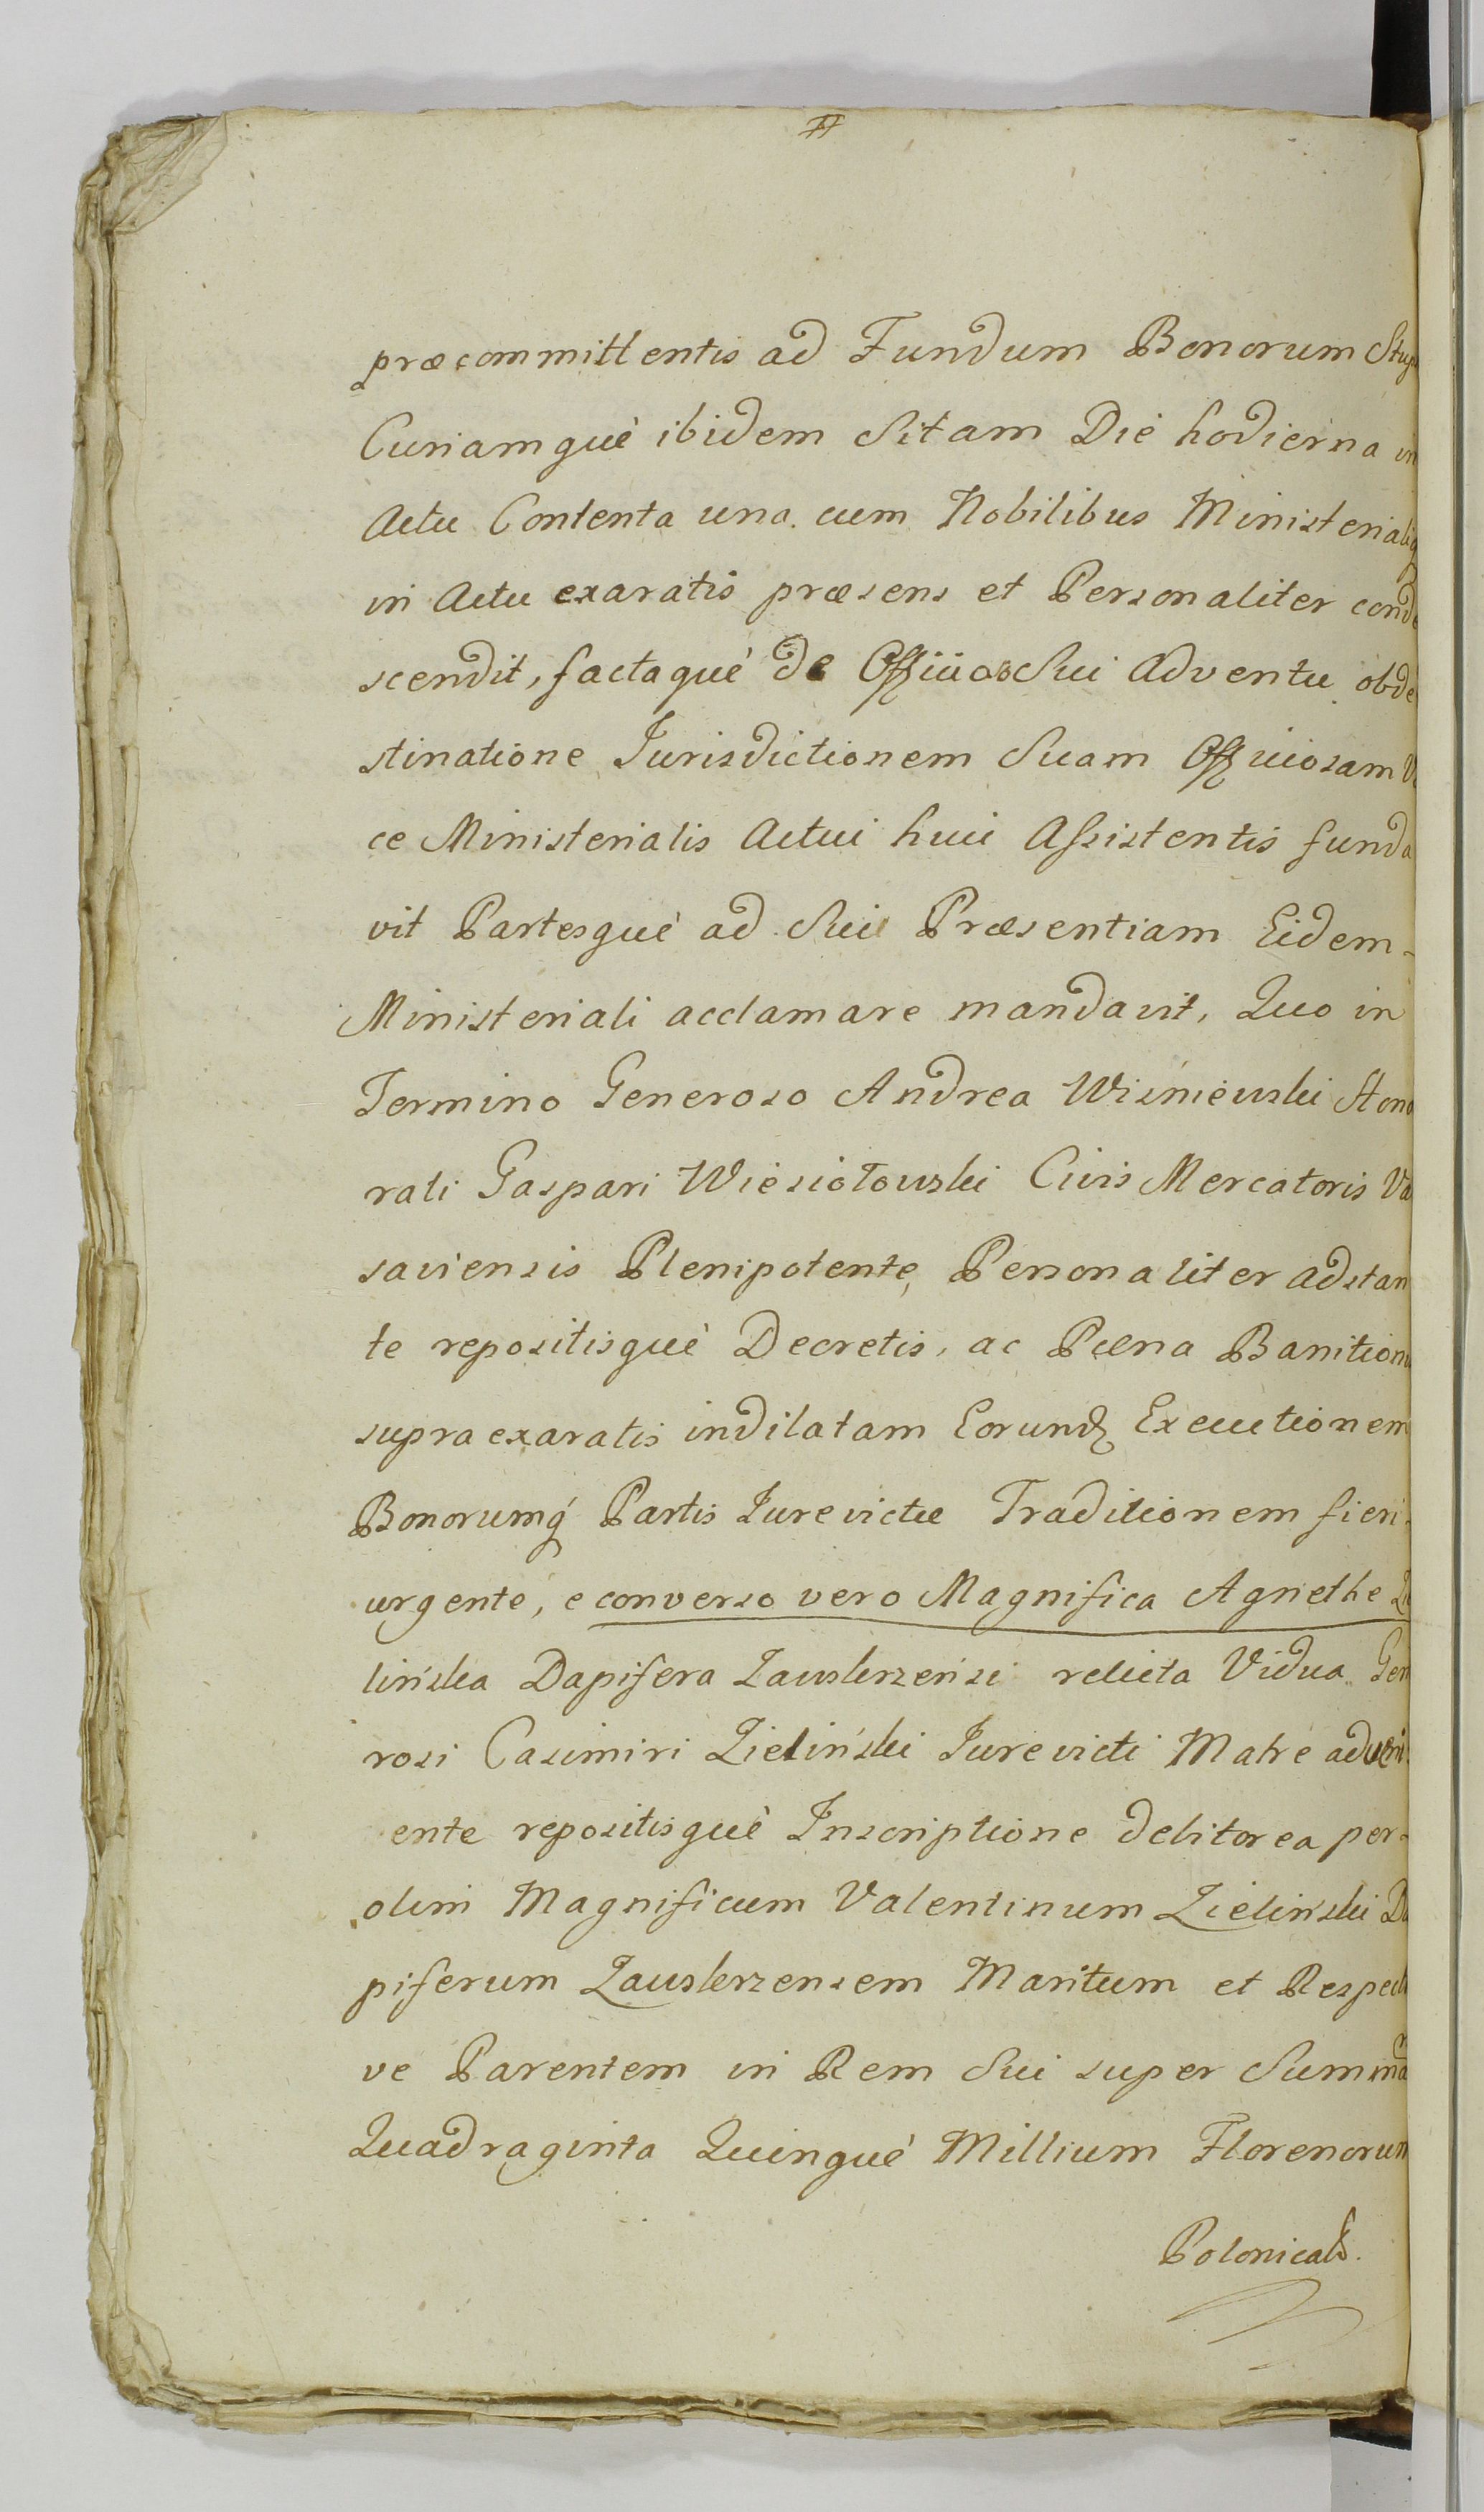 præcommittentis ad Fundum Bonorum Stup
Curiamquè ibidem Sitam Die hodierna in
Actu Contenta una cum Nobilibus Ministeriali
in Actu exaratis præsens et Personaliter conde
scendit, factaquè de Officioso Sui Adventu obde
stinatione Jurisdictionem Suam Officiosam Vo
ce Ministerialis Actui huic Assistentis funda
vit Partesquè ad Sui Præsentiam Eidem
Ministeriali acclamare mandavit, Quo in
Termino Generoso Andrea Wisniewski Hono
rati Gaspari Wiesiołowski Civis Mercatoris Va
saviensis Plenipotente, Personaliter adstan
te repositisquè Decretis, ac Pœna Banitionis
supra exaratis indilatam Eorund Executionem
Bonorumq́ Partis Jurevictæ Traditionem fieri
urgente, e converso vero Magnifica Agnethe Zie
lińska Dapifera Zawskrzeńsi relicta Vidua Gen
rosi Casimiri Zieliński Jurevicti Matre adveni
ente repositisquè Inscriptione debitorea per
olim Magnificum Valentinum Zieliński Da
piferum Zawskrzensem Maritum et Respecti
ve Parentem in Rem Sui super Summa
Quadraginta Quinquè Millium Florenorum
Polonicals.